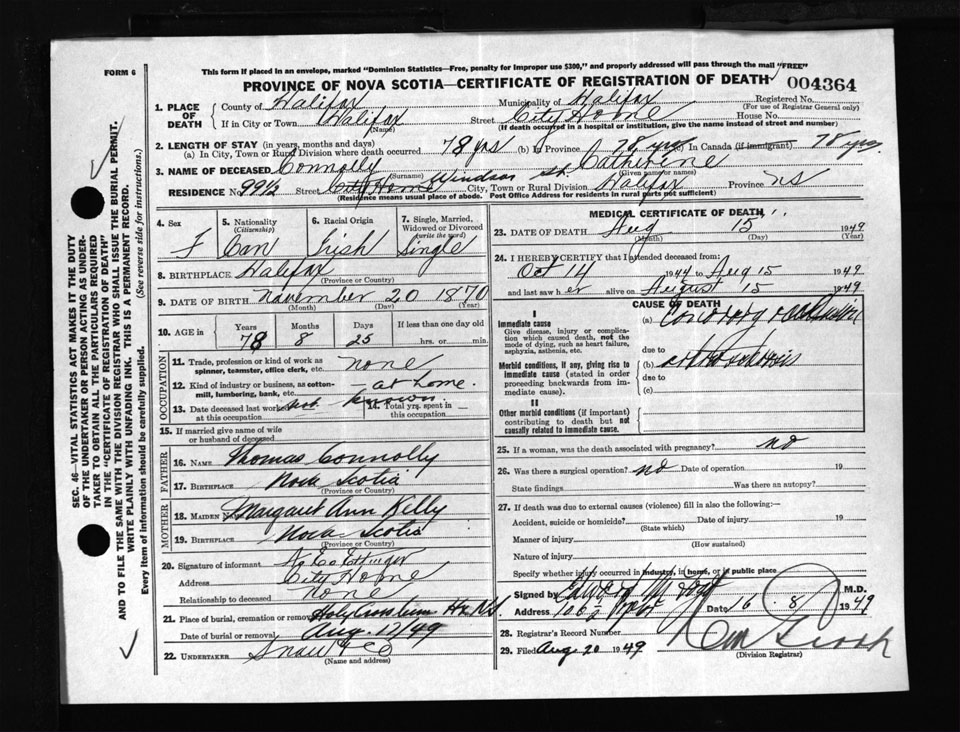 FORM 6
This form if placed in an envelope, marked "Dominion Statistics—Free, penalty for improper use $300," and properly addressed will pass through the mail "FREE"
PROVINCE OF NOVA SCOTIA—CERTIFICATE OF REGISTRATION OF DEATH 004364
1. PLACE OF DEATH
County of Halifax Municipality of Halifax Registered No.
(For use of Registrar General only)
If in City or Town Halifax Street City Home House No.
(Name) (If death occurred in a hospital or institution, give the name instead of street and number)
2. LENGTH OF STAY (in years, months and days)
(a) In City, Town or Rural Division where death occurred 78 yrs (b) In Province 78 yrs In Canada (if immigrant) 78 yrs
3. NAME OF DECEASED Connolly Catherine
(Surname) (Given name or names)
RESIDENCE No. 99½ Street City Home Windsor St. City, Town or Rural Division Halifax Province NS
(Residence means usual place of abode. Post Office Address for residents in rural parts not sufficient)
4. Sex F
5. Nationality (Citizenship) Can
6. Racial Origin Irish
7. Single, Married, Widowed or Divorced (write the word) Single
8. BIRTHPLACE Halifax
(Province or Country)
9. DATE OF BIRTH November 20 1870
(Month) (Day) (Year)
10. AGE in Years Months Days If less than one day old
78 8 25 hrs. or min.
OCCUPATION
11. Trade, profession or kind of work as spinner, teamster, office clerk, etc. none
12. Kind of industry or business, as cotton-mill, lumbering, bank, etc. — at home.
13. Date deceased last worked at this occupation not known
14. Total yrs. spent in this occupation
15. If married give name of wife or husband of deceased
FATHER
16. NAME Thomas Connolly
17. BIRTHPLACE Nova Scotia
(Province or Country)
MOTHER
18. MAIDEN NAME Margaret Ann Kelly
19. BIRTHPLACE Nova Scotia
(Province or Country)
20. Signature of informant Ettinger
Address City Home
Relationship to deceased none
21. Place of burial, cremation or removal Holy Cross Cem Hx NS
Date of burial or removal Aug. 17/49
22. UNDERTAKER Snow & Co
(Name and address)
MEDICAL CERTIFICATE OF DEATH
23. DATE OF DEATH Aug 15 1949
(Month) (Day) (Year)
24. I HEREBY CERTIFY that I attended deceased from:
Oct 14 1944 to Aug 15 1949
and last saw her alive on August 15 1949
CAUSE OF DEATH
I
Immediate cause
Give disease, injury or complication which caused death, not the mode of dying, such as heart failure, asphyxia, asthenia, etc.
(a) Coronary occlusion
due to
Morbid conditions, if any, giving rise to immediate cause (stated in order proceeding backwards from immediate cause).
(b)
due to
(c)
II
Other morbid conditions (if important) contributing to death but not causally related to immediate cause.
25. If a woman, was the death associated with pregnancy? no
26. Was there a surgical operation? no Date of operation 19
State findings Was there an autopsy?
27. If death was due to external causes (violence) fill in also the following:
Accident, suicide or homicide? Date of injury 19
(State which)
Manner of injury
(How sustained)
Nature of injury
Specify whether injury occurred in industry, in home, or in public place
Signed by Edward M.D.
Address Date 16 8 1949
28. Registrar's Record Number
29. Filed Aug 20 1949
(Division Registrar)
SEC. 46—VITAL STATISTICS ACT MAKES IT THE DUTY
OF THE UNDERTAKER OR PERSON ACTING AS UNDER-
TAKER TO OBTAIN ALL THE PARTICULARS REQUIRED
IN THE "CERTIFICATE OF REGISTRATION OF DEATH"
AND TO FILE THE SAME WITH THE DIVISION REGISTRAR WHO SHALL ISSUE THE BURIAL PERMIT.
WRITE PLAINLY WITH UNFADING INK. THIS IS A PERMANENT RECORD.
Every item of information should be carefully supplied. (See reverse side for instructions.)